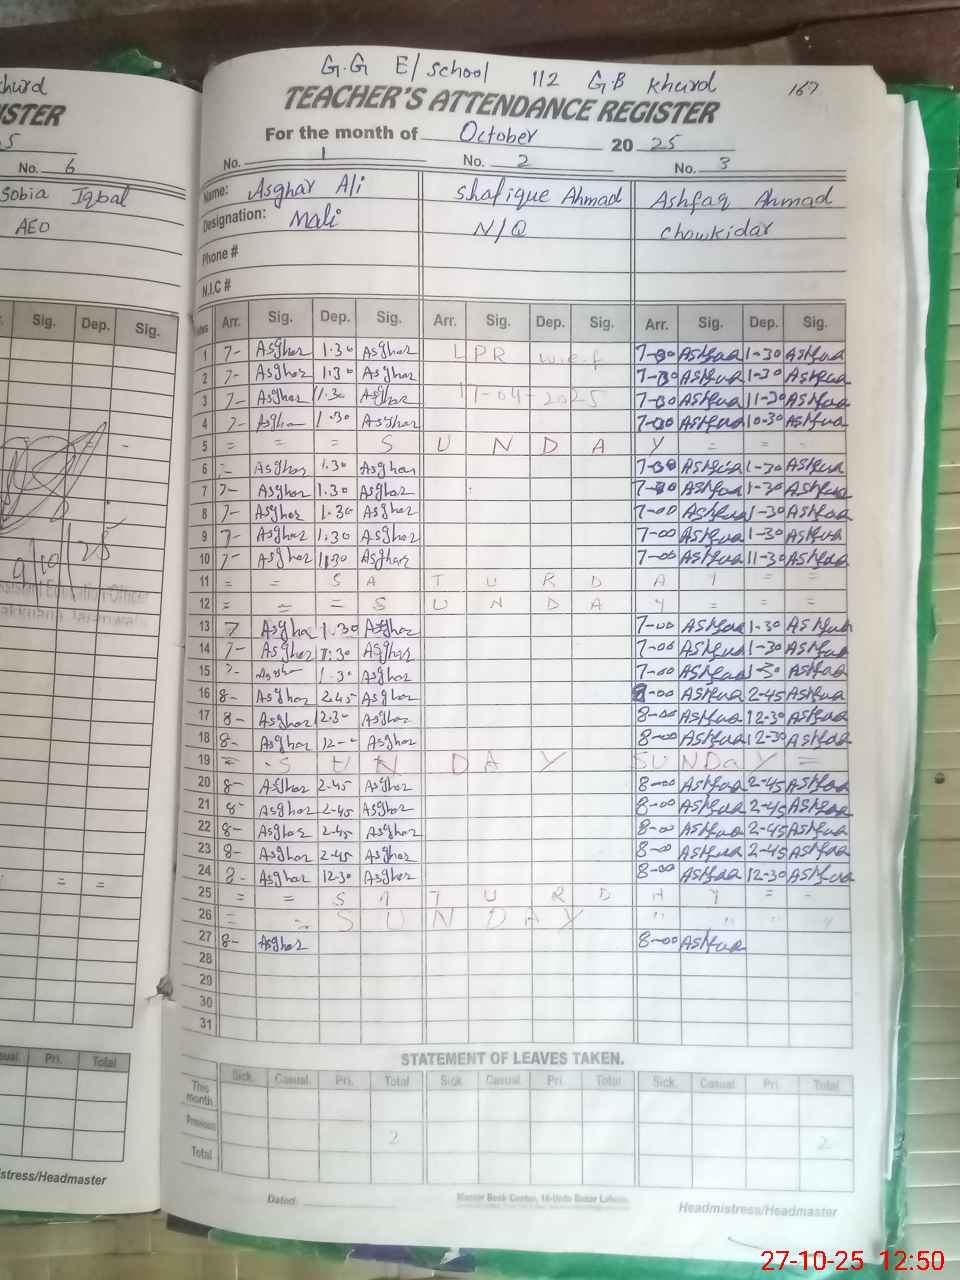 khurd
ISTER
5
No. 6
Sobia Iqbal
AEO
Sig. Dep. Sig.
9/10/25
Pri. Total
stress/Headmaster
G.G E/school 112 G.B khurd 167
TEACHER'S ATTENDANCE REGISTER
For the month of October 20 25
No. 1 No. 2 No. 3
Name: Asghar Ali Shafique Ahmad Ashfaq Ahmad
Designation: Mali N/Q Chowkidar
Phone #
N.I.C #
Arr. Sig. Dep. Sig. Arr. Sig. Dep. Sig. Arr. Sig. Dep. Sig.
1 7- Asghar 1.30 Asghar LPR w.e.f 7-00 Ashfaq 1-30 Ashfaq
2 7- Asghar 1.30 Asghar 7-00 Ashfaq 1-30 Ashfaq
3 7- Asghar 11.30 Asghar 17-04-2025 7-00 Ashfaq 11-30 Ashfaq
4 7- Asghar 1.30 Asghar 7-00 Ashfaq 10-30 Ashfaq
5 = = = S U N D A Y = = -
6 7- Asghar 1.30 Asghar 7-00 Ashfaq 1-30 Ashfaq
7 7- Asghar 1.30 Asghar 7-00 Ashfaq 1-30 Ashfaq
8 7- Asghar 1.30 Asghar 7-00 Ashfaq 1-30 Ashfaq
9 7- Asghar 1.30 Asghar 7-00 Ashfaq 1-30 Ashfaq
10 7- Asghar 11.30 Asghar 7-00 Ashfaq 11-30 Ashfaq
11 = = S A T U R D A Y = =
12 = = = S U N D A Y = = =
13 7 Asghar 1.30 Asghar 7-00 Ashfaq 1-30 Ashfaq
14 7- Asghar 1.30 Asghar 7-00 Ashfaq 1-30 Ashfaq
15 7- Asghar 1.30 Asghar 7-00 Ashfaq 1-30 Ashfaq
16 8- Asghar 2.45 Asghar 8-00 Ashfaq 2-45 Ashfaq
17 8- Asghar 12.30 Asghar 8-00 Ashfaq 12-30 Ashfaq
18 8- Asghar 12-- Asghar 8-00 Ashfaq 12-30 Ashfaq
19 = S U N D A Y SUNDAY =
20 8- Asghar 2-45 Asghar 8-00 Ashfaq 2-45 Ashfaq
21 8- Asghar 2-45 Asghar 8-00 Ashfaq 2-45 Ashfaq
22 8- Asghar 2-45 Asghar 8-00 Ashfaq 2-45 Ashfaq
23 8- Asghar 2-45 Asghar 8-00 Ashfaq 2-45 Ashfaq
24 8- Asghar 12-30 Asghar 8-00 Ashfaq 12-30 Ashfaq
25 = = S A T U R D A Y = -
26 = = S U N D A Y " " " "
27 8- Asghar 8-00 Ashfaq
28
29
30
31
STATEMENT OF LEAVES TAKEN.
Sick. Casual. Pri. Total Sick Casual Pri. Total Sick Casual Pri. Total
This month
Previous 2 2
Total
Dated:
Master Book Center, 16-Urdu Bazar Lahore.
Headmistress/Headmaster
27-10-25 12:50